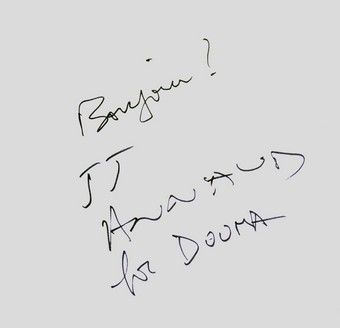 Bonjour!
JJ
ANNAUD
for DOUMA